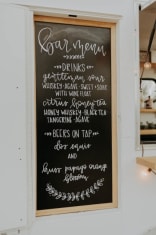 bar menu
DRINKS
gentleman sour
WHISKEY · AGAVE · SWEET + SOUR
WITH WINE FLOAT
citrus honey tea
HONEY WHISKEY · BLACK TEA
TANGERINE · AGAVE
BEERS ON TAP
dos equis
AND
orange
blossom